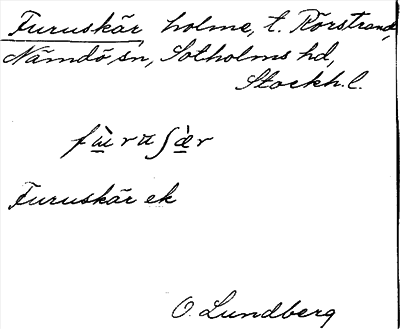 Furuskär, holme, t. Rörstrand,
Nämdö sn, Sotholms hd,
Stockh. l.
fu̠̇̀rɯʃæ̠̀r
Furuskär ek
O. Lundberg